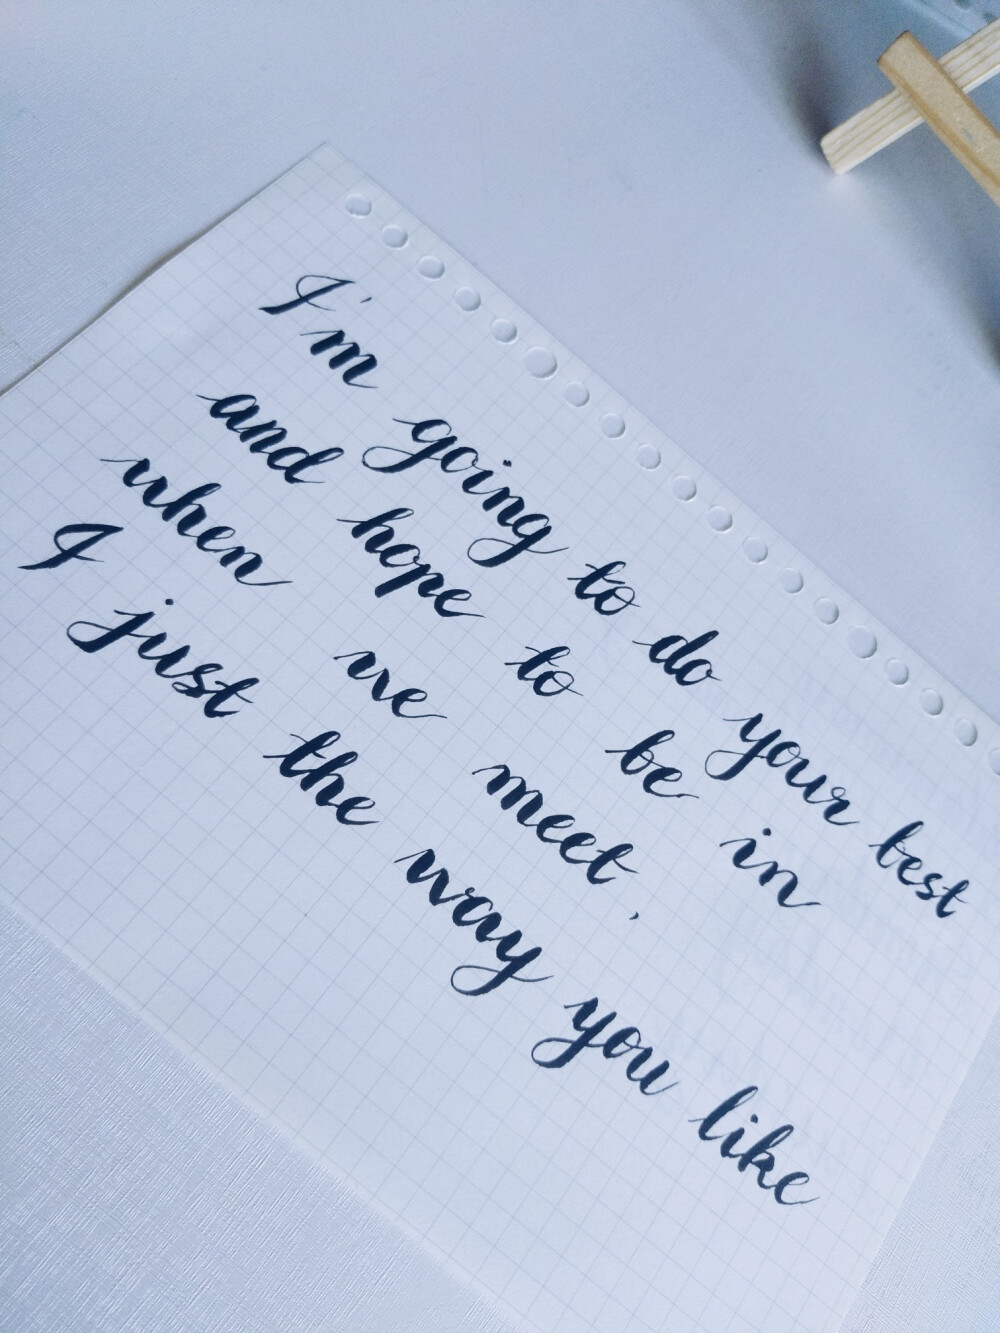 I'm going to do your best
and hope to be in
when we meet,
I just the way you like